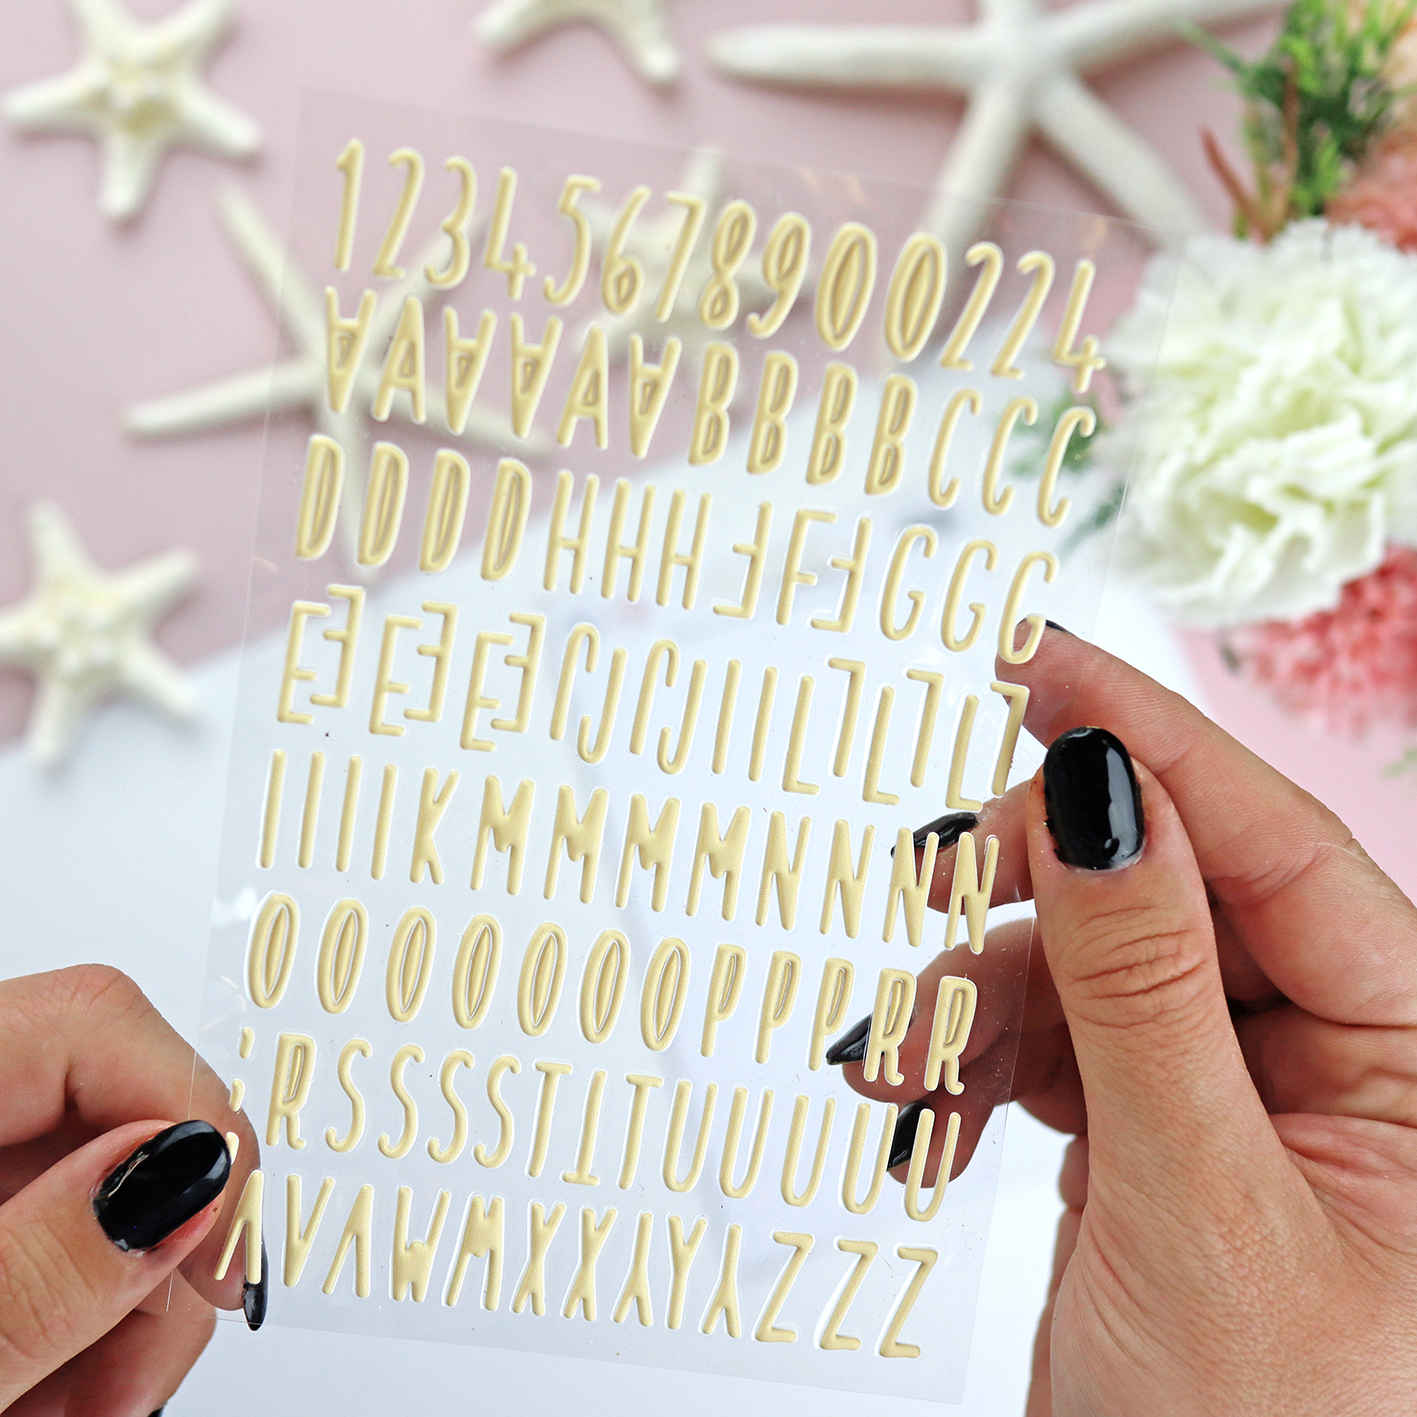 12345678900224
AAAAAABBBBCCC
DDDDHHHFFFGGG
EEEEEEJJJJIILLLLLL
IIIIKMMMMNNNN
OOOOOOOPPPRR
'RSSSSTTTUUUUU
VVVWMXXYYYZZZ